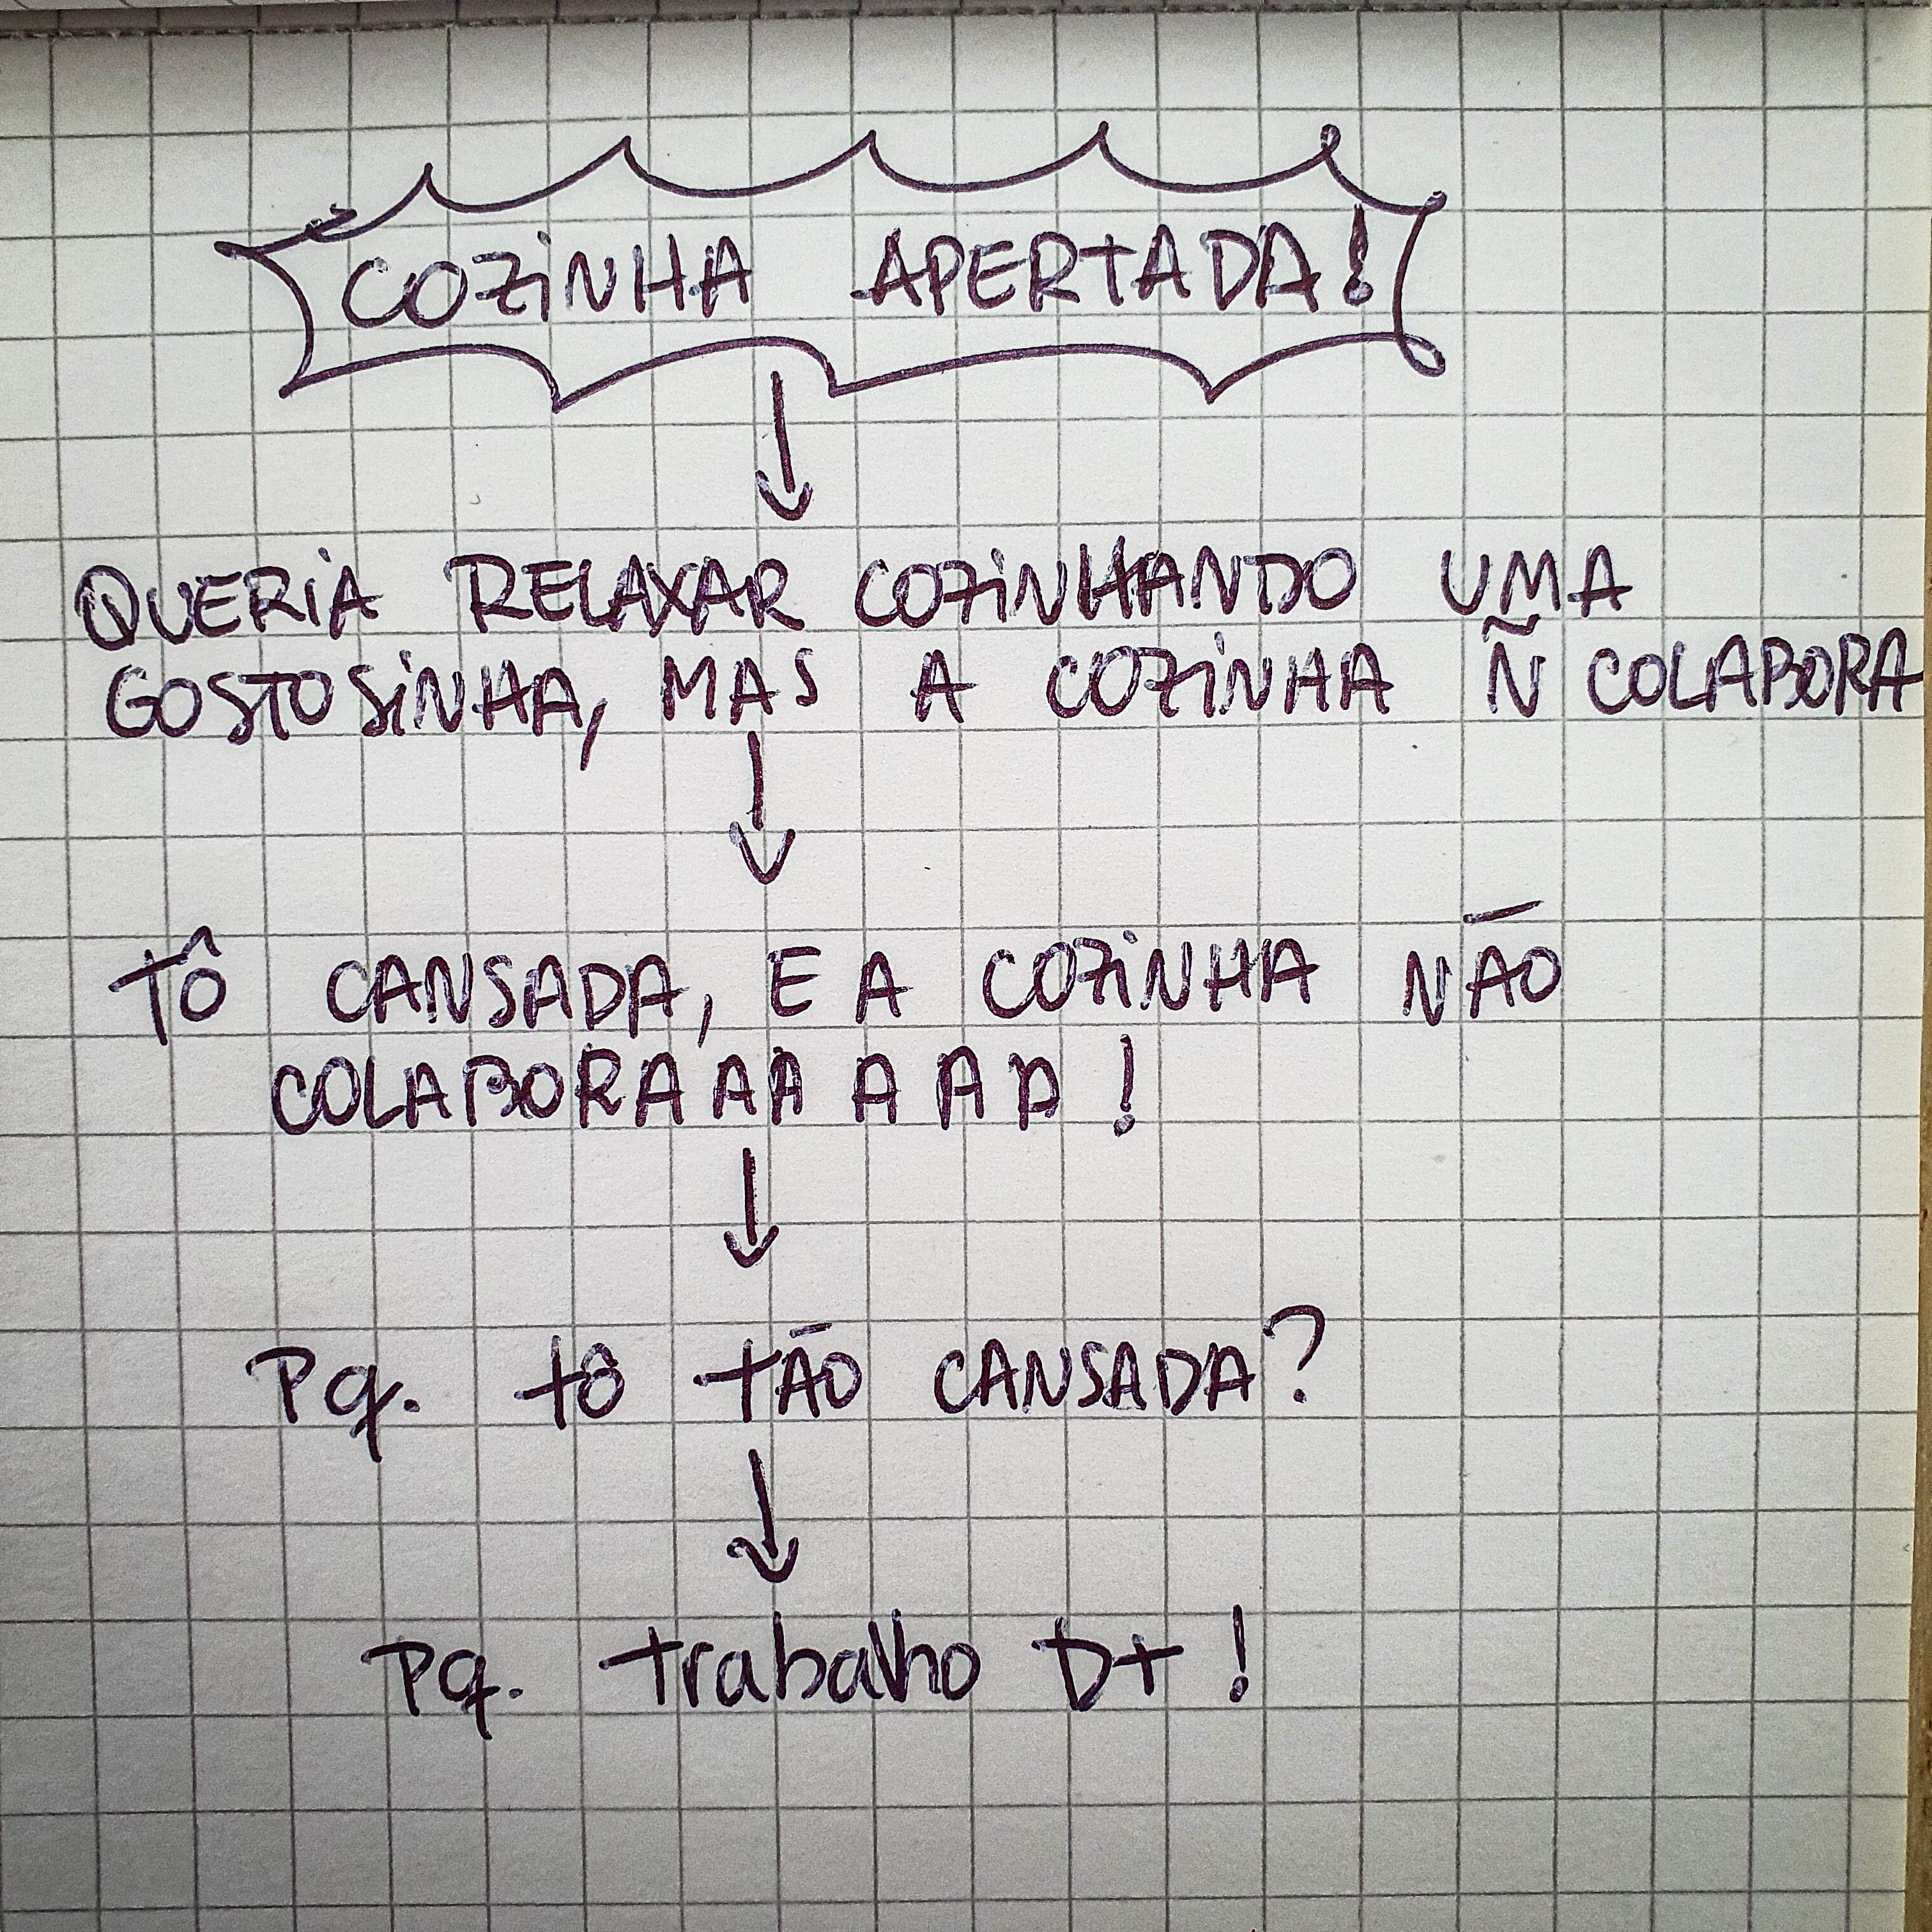 COZINHA APERTADA!
QUERIA RELAXAR COZINHANDO UMA
GOSTOSINHA, MAS A COZINHA Ñ COLABORA
TÔ CANSADA, E A COZINHA NÃO
COLABORAAAAAA!
Pq. tô tÃO CANSADA?
Pq. trabalho D+!